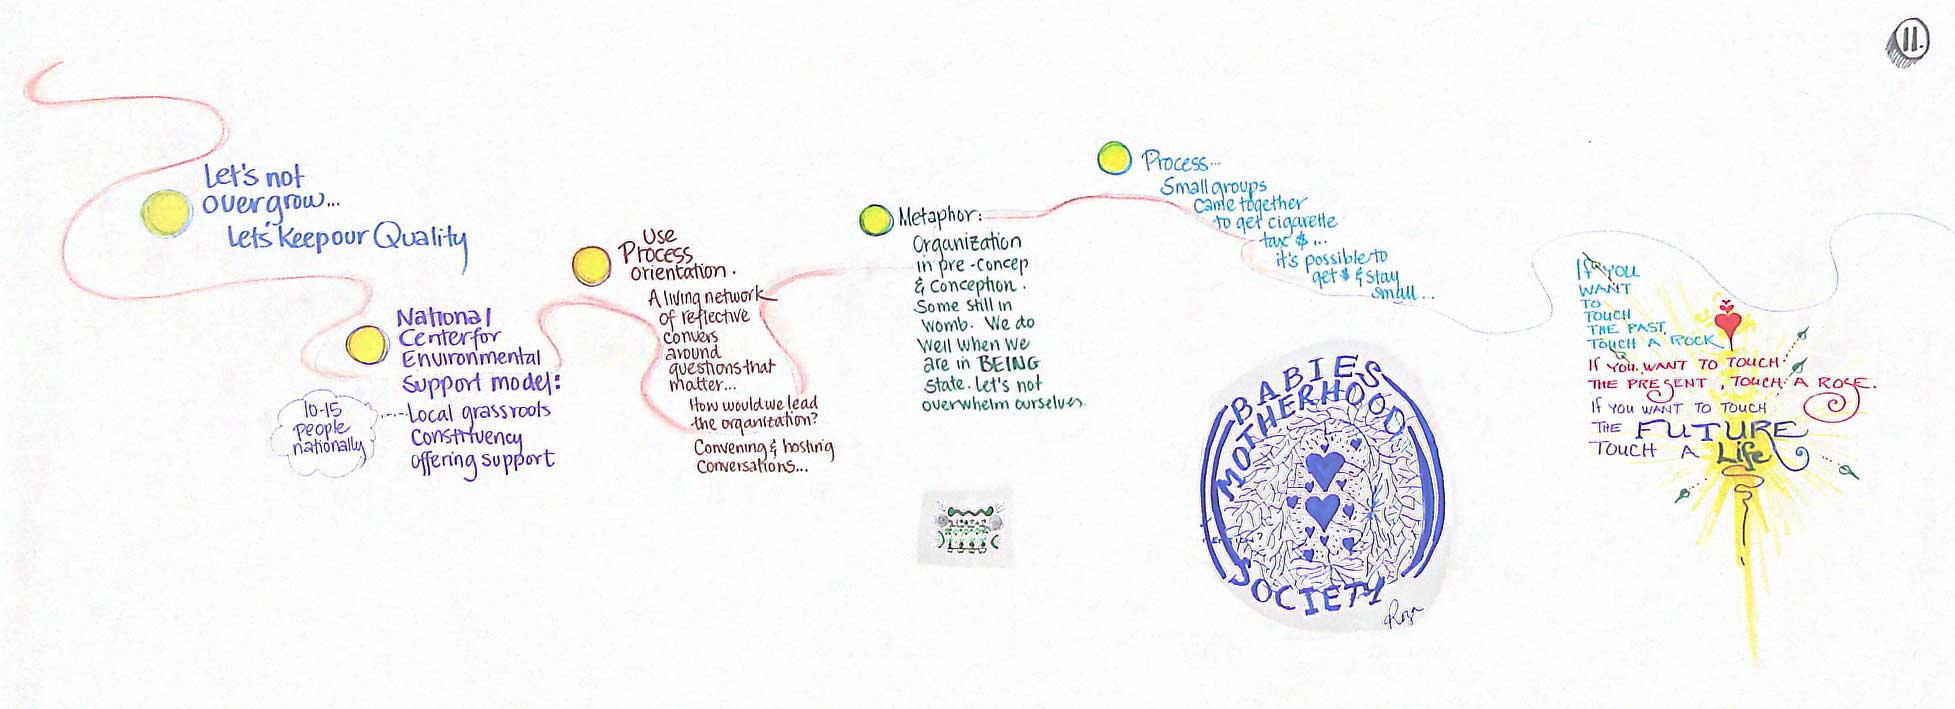 11.
Let's not
overgrow...
Let's keep our Quality
National
Center for
Environmental
Support model:
10-15
people
nationally
Local grassroots
Constituency
offering support
Use
Process
orientation.
A living network
of reflective
convers
around
questions that
matter...
How would we lead
the organization?
Convening & hosting
Conversations...
Metaphor:
Organization
in pre-concep
& Conception.
Some still in
womb. We do
well when we
are in BEING
state. Let's not
overwhelm ourselves.
Process...
Small groups
came together
to get cigarette
tax $...
it's possible to
get $ & stay
small...
BABIES
MOTHERHOOD
SOCIETY
If YOU
WANT
TO
TOUCH
THE PAST,
TOUCH A ROCK
If YOU WANT TO TOUCH
THE PRESENT, TOUCH A ROSE.
If YOU WANT TO TOUCH
THE FUTURE
TOUCH A Life